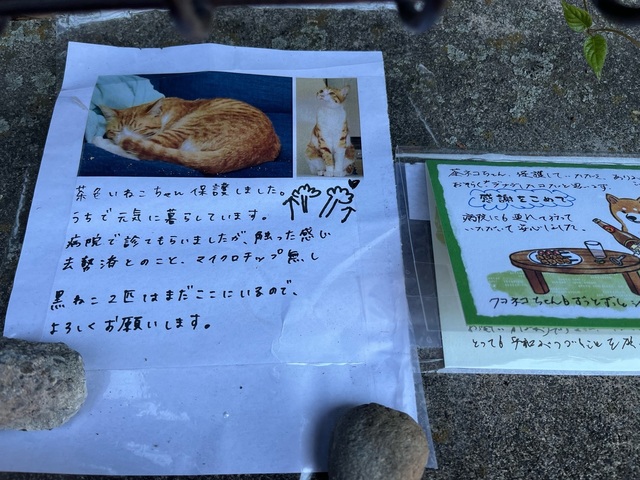 茶色いねこちゃん保護しました。
うちで元気に暮らしています。
病院で診てもらいましたが、触った感じ
去勢済とのこと、マイクロチップ無し
黒ねこ2匹はまだここにいるので、
よろしくお願いします。
茶ネコちゃん、保護していただき、あり
感謝をこめて
病院にも連れて行って
いただいて安心しました
クロネコちゃんも
とっても平和